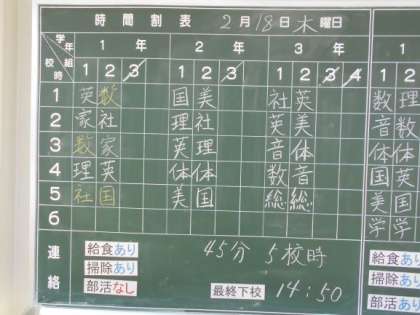 時間割表 2月18日木曜日
学年 組 校時 1年 2年 3年 1
1 2 3 1 2 3 1 2 3 4 1 2
1 英 数 国 美 社 英 数 理
2 家 社 理 社 英 美 音 数
3 数 家 英 理 音 体 体 体
4 理 英 体 体 数 音 国 英
5 社 国 美 国 総 総 美 国
6 学 学
連絡 給食あり 45分 5校時 給食あり
掃除あり 掃除あり
部活なし 最終下校 14:50 部活